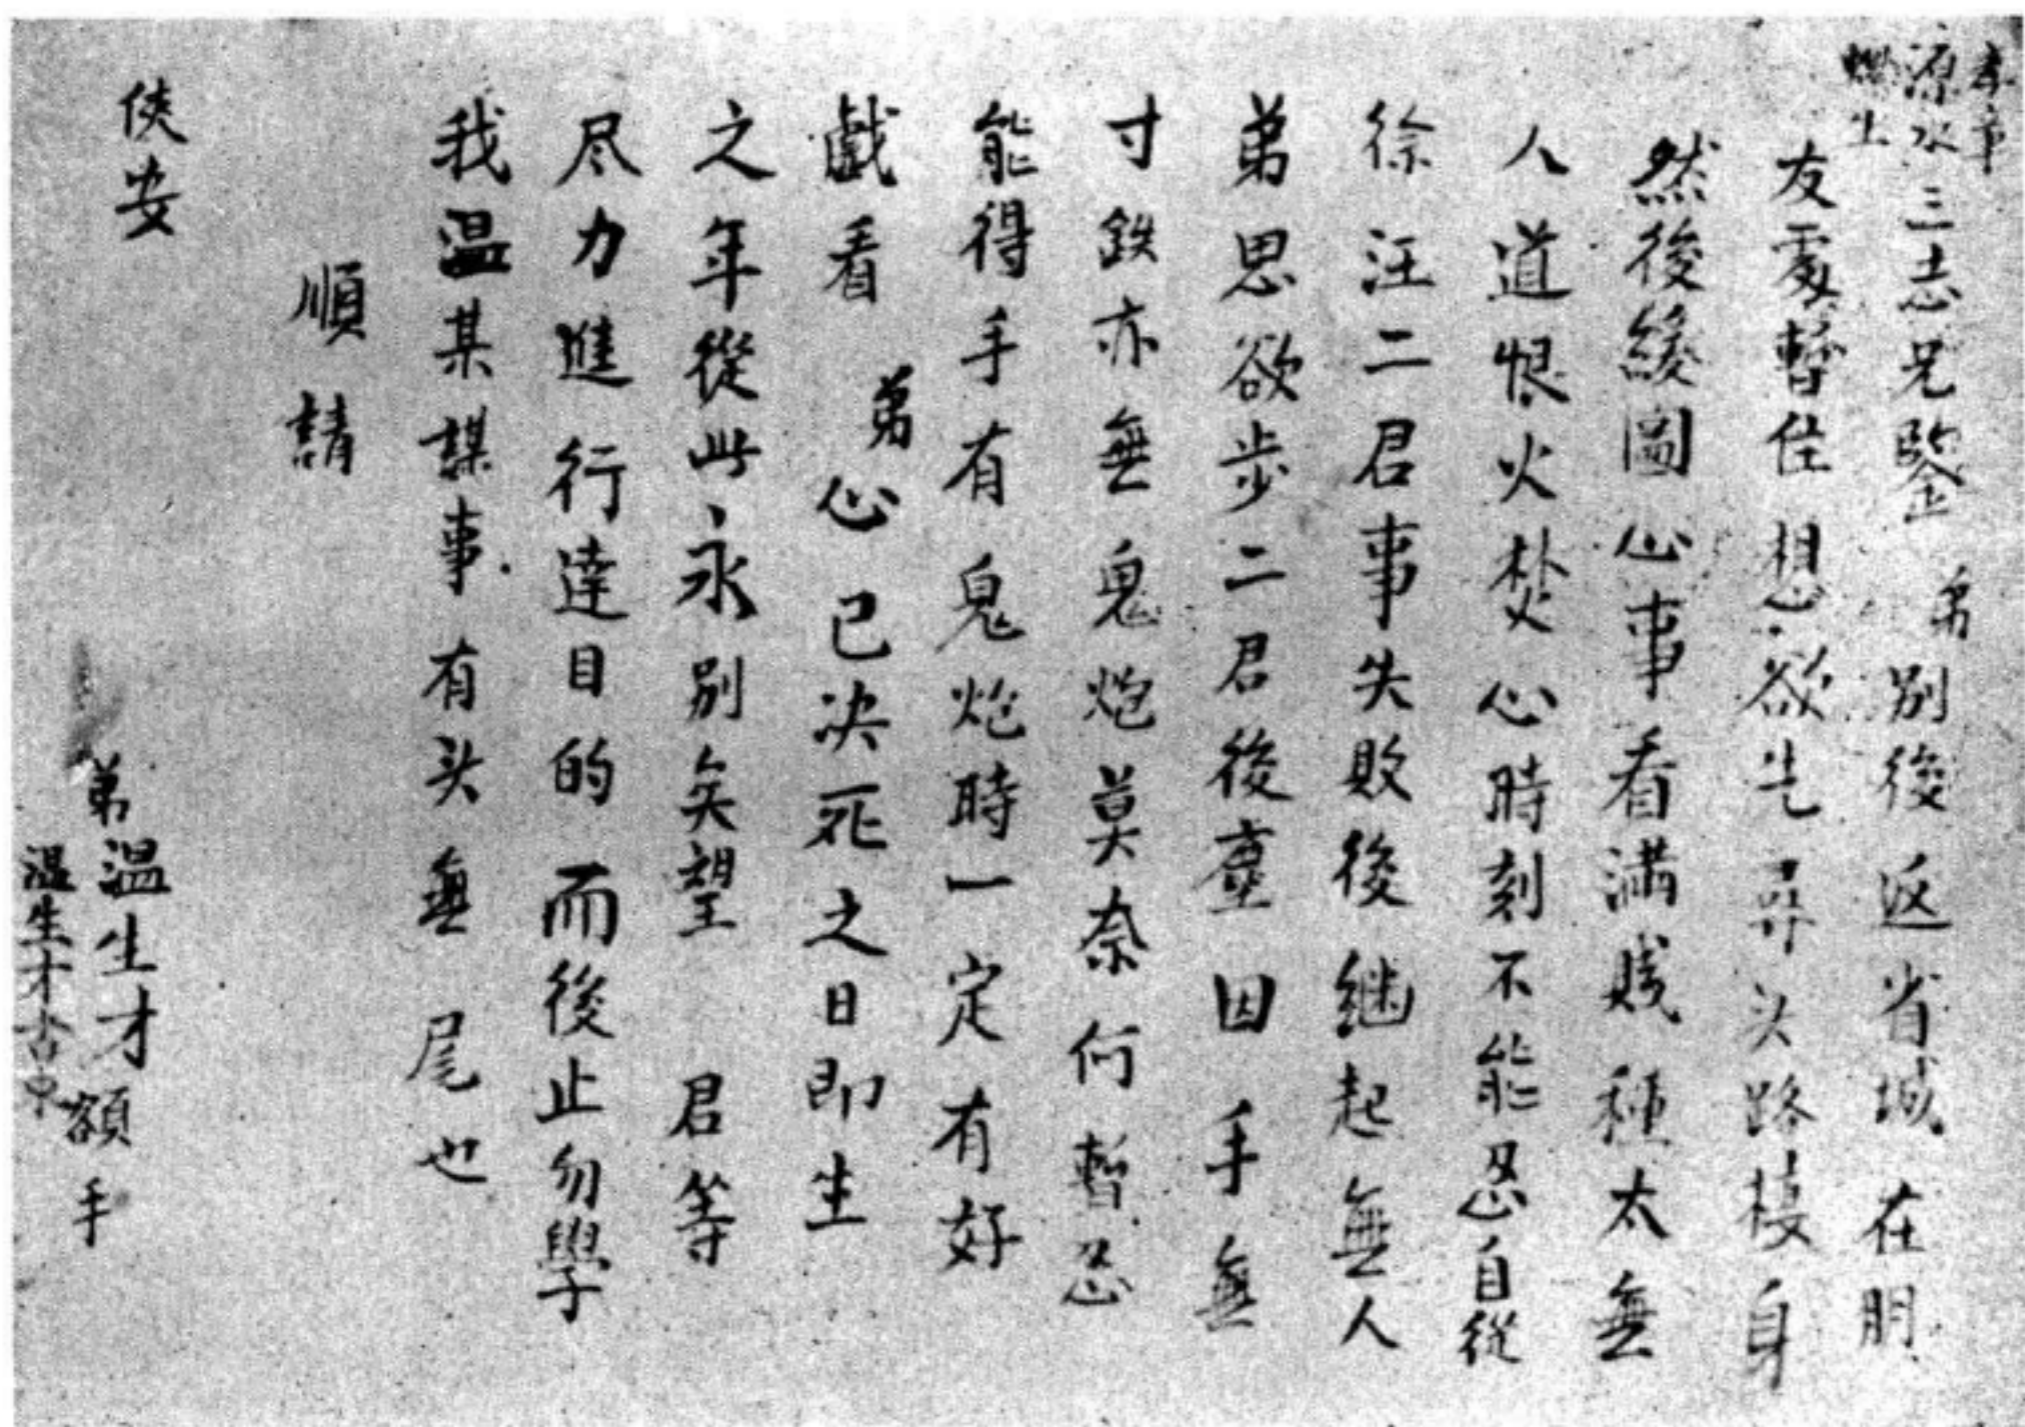 孝章
源水三志兄鑒 弟別後返省城在朋
螺生
友處暫住想欲先尋头路棲身
然後緩圖心事看滿賤種太無
人道恨火焚心時刻不能忍自從
徐汪二君事失敗後継起無人
弟思欲步二君後塵因手無
寸鉄亦無鬼炮莫奈何暫忍
能得手有鬼炮時一定有好
戲看 弟心已决死之日即生
之年從此永別矣望 君等
尽力進行達目的而後止勿學
我温某謀事有头無尾也
順請
俠安
弟温生才額手
温生才